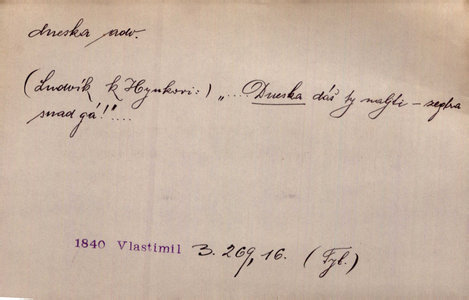 dneska adv.
(Ludvík k Hynkovi:) „.... Dneska dáš ty nalíti – zejtra
snad gá!"....
1840 Vlastimil 3. 269, 16. (Tyl.)